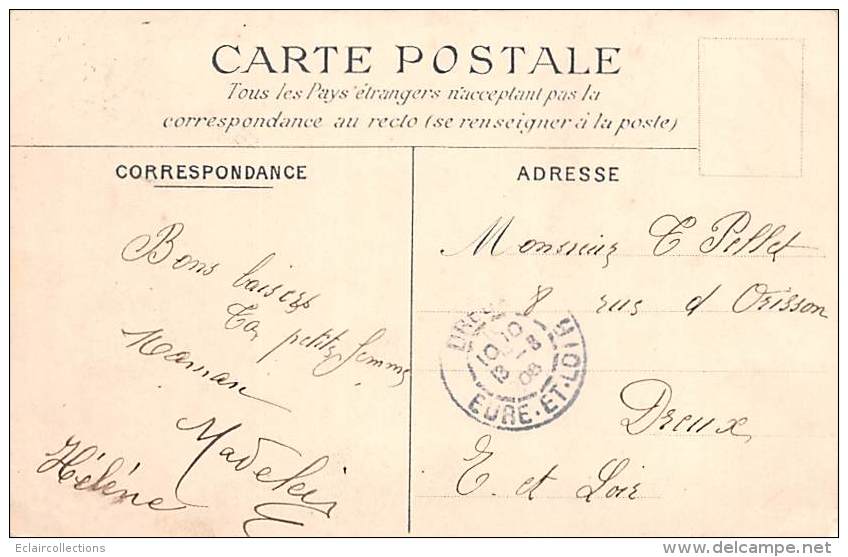 CARTE POSTALE
Tous les Pays étrangers n'acceptant pas la
correspondance au recto (se renseigner à la poste)
CORRESPONDANCE
Bons baisers
Ta petite femme
Maman
Madelein
Hélène
ADRESSE
Monsieur C Pellet
8 rue d Orisson
Dreux
E. et Loir
10 10
13 - 8
08
EURE-ET-LOIR
Eclaircollections
http://eclaircollections.delcampe.net